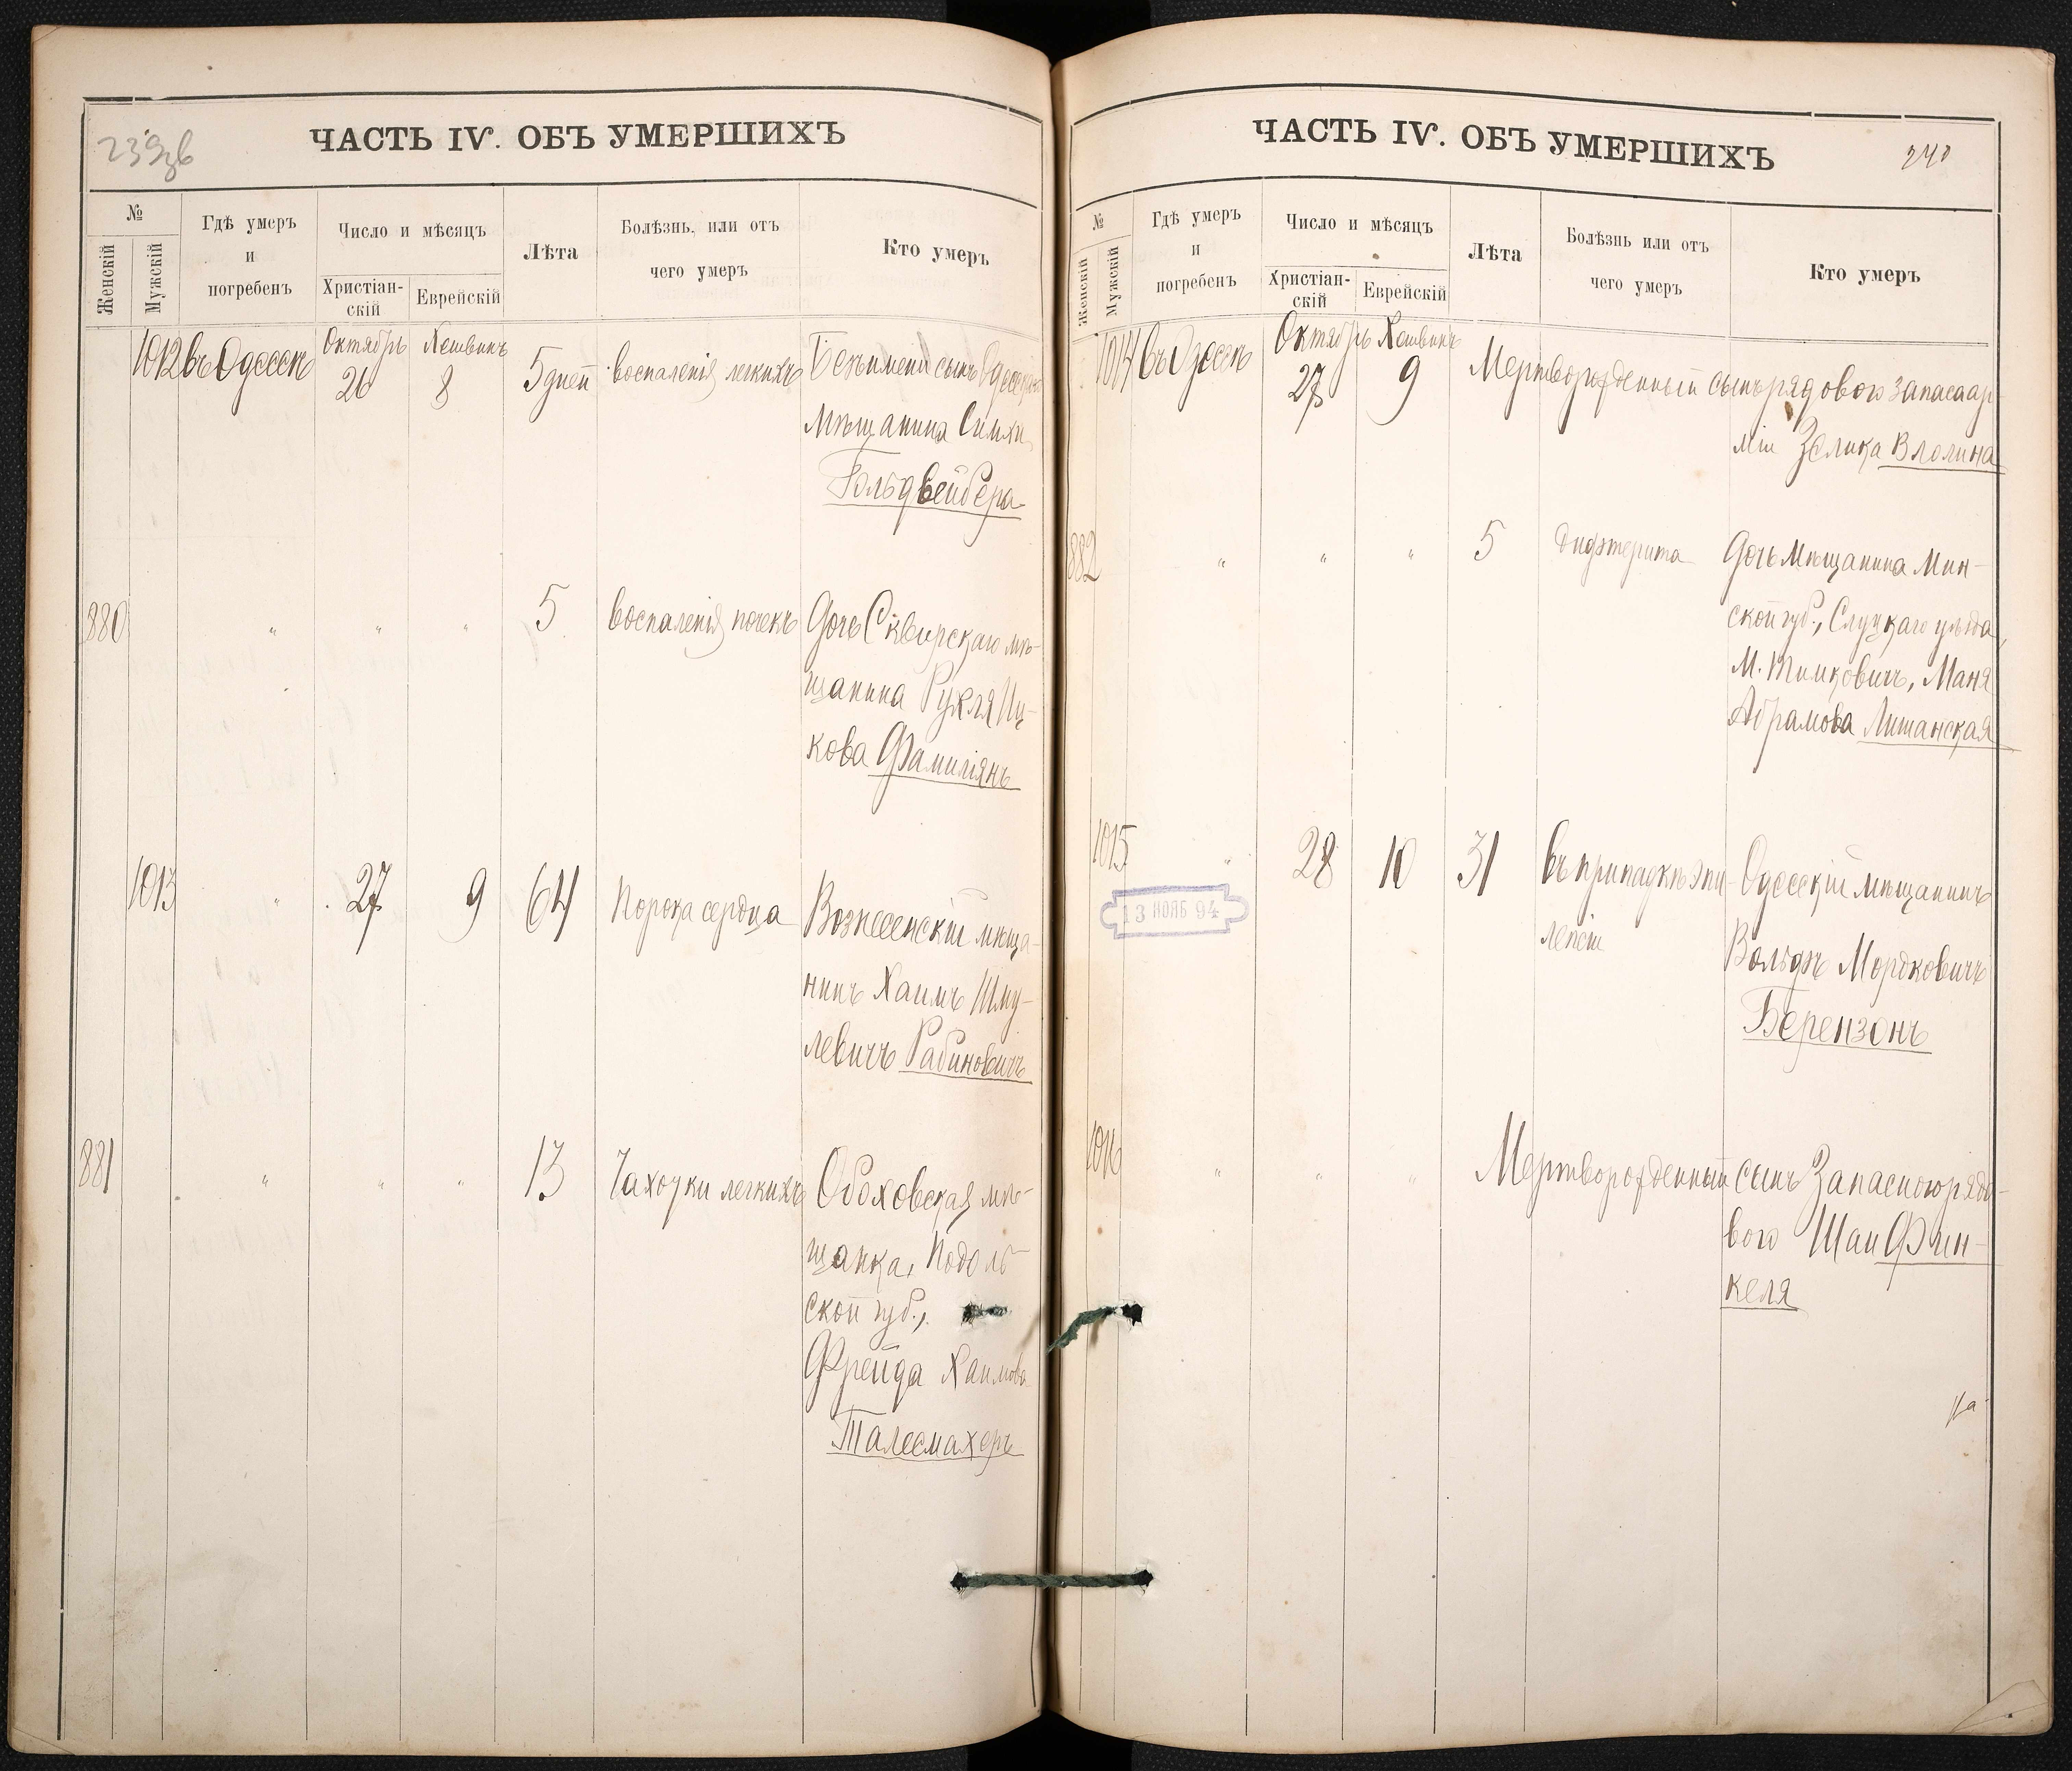 239об
ЧАСТЬ IV. ОБЪ УМЕРШИХЪ
№
Женскій
Мужскій
Гдѣ умеръ
и
погребенъ
Число и мѣсяцъ
Христіан-
скій
Еврейскій
Лѣта
Болѣзнь, или отъ
чего умеръ
Кто умеръ
1012 въ Одессѣ Октябрь 26 Хешвинъ 8 5 дней воспаленія легкихъ Безъимени сынъ Одесскаго
мѣщанина Симхи
Гольдвейбера
880 " " " 5 воспаленія почекъ Дочь Сквирскаго мѣ-
щанина Рухля Иц-
кова Фамиліянъ
1013 " 27 9 64 Порока сердца Вознесенскій мѣща-
нинъ Хаимъ Шму-
левичъ Рабиновичъ
881 " " " 13 Чахотки легкихъ Ободовская мѣ-
щанка, Подоль-
ской губ.,
Фрейда Хаимова
Талесмахеръ
ЧАСТЬ IV. ОБЪ УМЕРШИХЪ
240
№
Женскій
Мужскій
Гдѣ умеръ
и
погребенъ
Число и мѣсяцъ
Христіан-
скій
Еврейскій
Лѣта
Болѣзнь или отъ
чего умеръ
Кто умеръ
1014 въ Одессѣ Октябрь 27 Хешвинъ 9 Мертворожденный сынъ рядового запаса ар-
міи Зелика
882 " " " 5 дифтерита Дочь мѣщанина Мин-
ской губ., Слуцкаго уѣзда,
М. Тимковичъ, Маня
Абрамова Литанская
1015 " 28 10 31 Въ припадкѣ эпи- Одесскій мѣщанинъ
лепсіи Вольфъ Мордковичъ
Берензонъ
13 НОЯБ 94
1016 " " " Мертворожденный сынъ Запасного рядо-
вого Шаи Фин-
келя